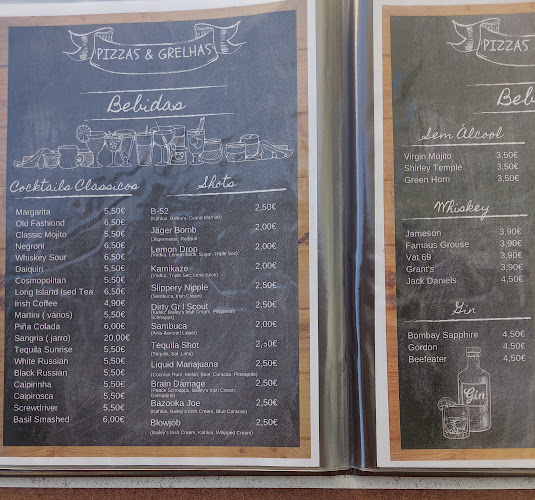 PIZZAS & GRELHAS
Bebidas
Cocktails Classicos
Margarita 5,50€
Old Fashiond 6,50€
Classic Mojito 5,50€
Negroni 6,50€
Whiskey Sour 6,00€
Daiquiri 5,50€
Cosmopolitan 5,50€
Long Island Ised Tea 6,50€
Irish Coffee 4,90€
Martini ( vários) 5,50€
Piña Colada 6,00€
Sangria ( jarro) 20,00€
Tequila Sunrise 5,50€
White Russian 5,50€
Black Russian 5,50€
Caipirinha 5,50€
Caipirosca 5,50€
Screwdriver 5,50€
Basil Smashed 6,00€
Shots
B-52 2,50€
(Kahlua, Bailey's, Grand Marnier)
Jäger Bomb 2,00€
(Jägermeister, Redbull)
Lemon Drop 2,00€
(Vodka, Lemon Juice, Sugar, Triple Sec)
Kamikaze 2,00€
(Vodka, Triple Sec, Lime Juice)
Slippery Nipple 2,50€
(Sambuca, Irish Cream)
Dirty Girl Scout 2,50€
(Kahlua, Bailey's Irish Cream, Peppermint
Schnapps)
Sambuca 2,00€
(Anis-flavored Liquer)
Tequila Shot 2,50€
(Tequila, Sal, Lima)
Liquid Mariajuana 2,50€
(Coconut Rum, Melon, Blue, Curacao, Pineapple)
Brain Damage 2,50€
(Peace Schnapps, Bailey's Irish Cream,
Grenadine)
Bazooka Joe 2,50€
(Kahlua, Bailey's Irish Cream, Blue Curacao)
Blowjob 2,50€
(Bailey's Irish Cream, Kahlua, Whipped Cream)
PIZZAS
Beb
Sem Álcool
Virgin Mojito 3,50€
Shirley Temple 3,50€
Green Horn 3,50€
Whiskey
Jameson 3,90€
Famaus Grouse 3,90€
Vat 69 3,90€
Grant's 3,90€
Jack Daniels 4,50€
Gin
Bombay Sapphire 4,50€
Gordon 4,50€
Beefeater 4,50€
Gin